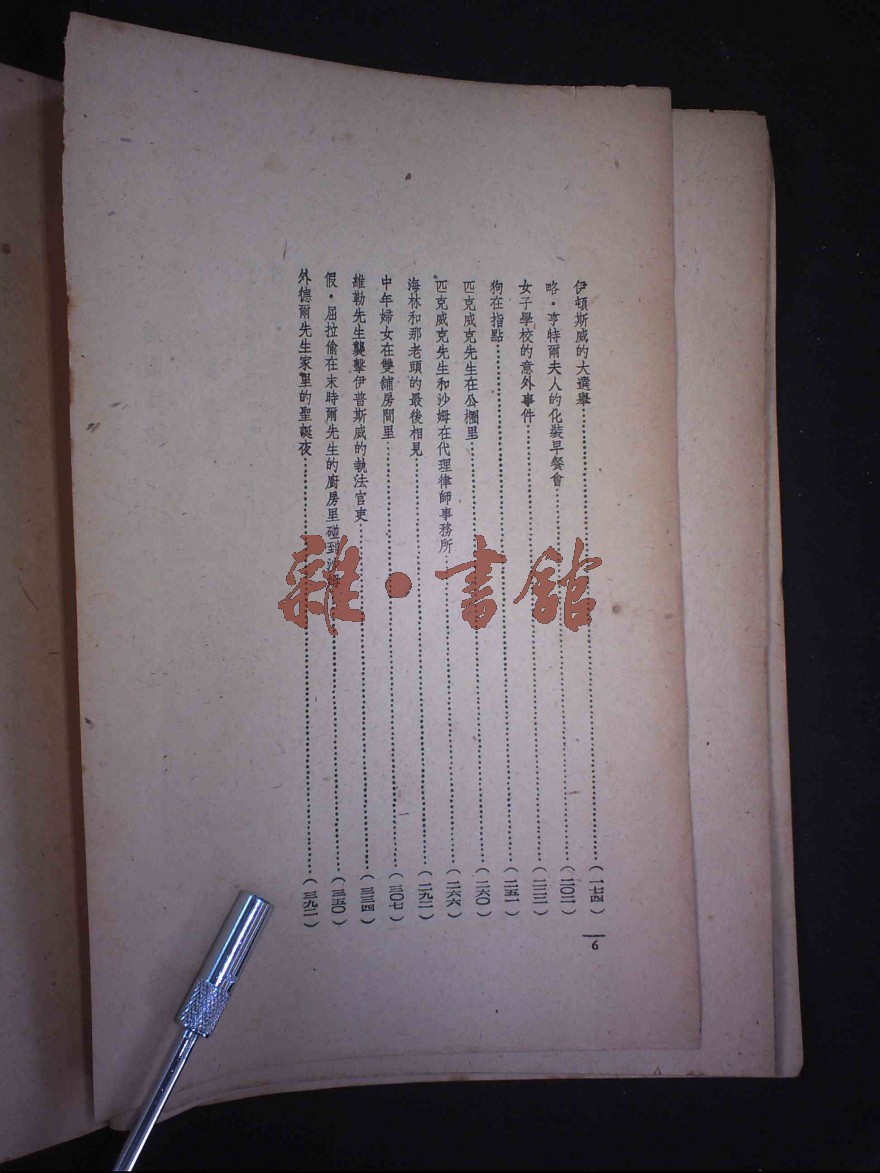 伊頓斯威的大選舉……(一七四)
略·亨特爾夫人的化裝早餐會……(二〇二)
女子學校的意外事件……(二三二)
狗在指點……(二五一)
匹克威克先生在公欄里……(二六〇)
匹克威克先生和沙姆在代理律師事務所……(二六六)
海林和那老頭的最後相見……(二九二)
中年婦女在雙鋪房間里……(三〇七)
維勒先生襲擊伊普斯威的執法官吏……(三三四)
假·屈拉偷在末時爾先生的廚房里碰到沙……(三五〇)
外德爾先生家里的聖誕夜……(三九二)
6
雜·書館